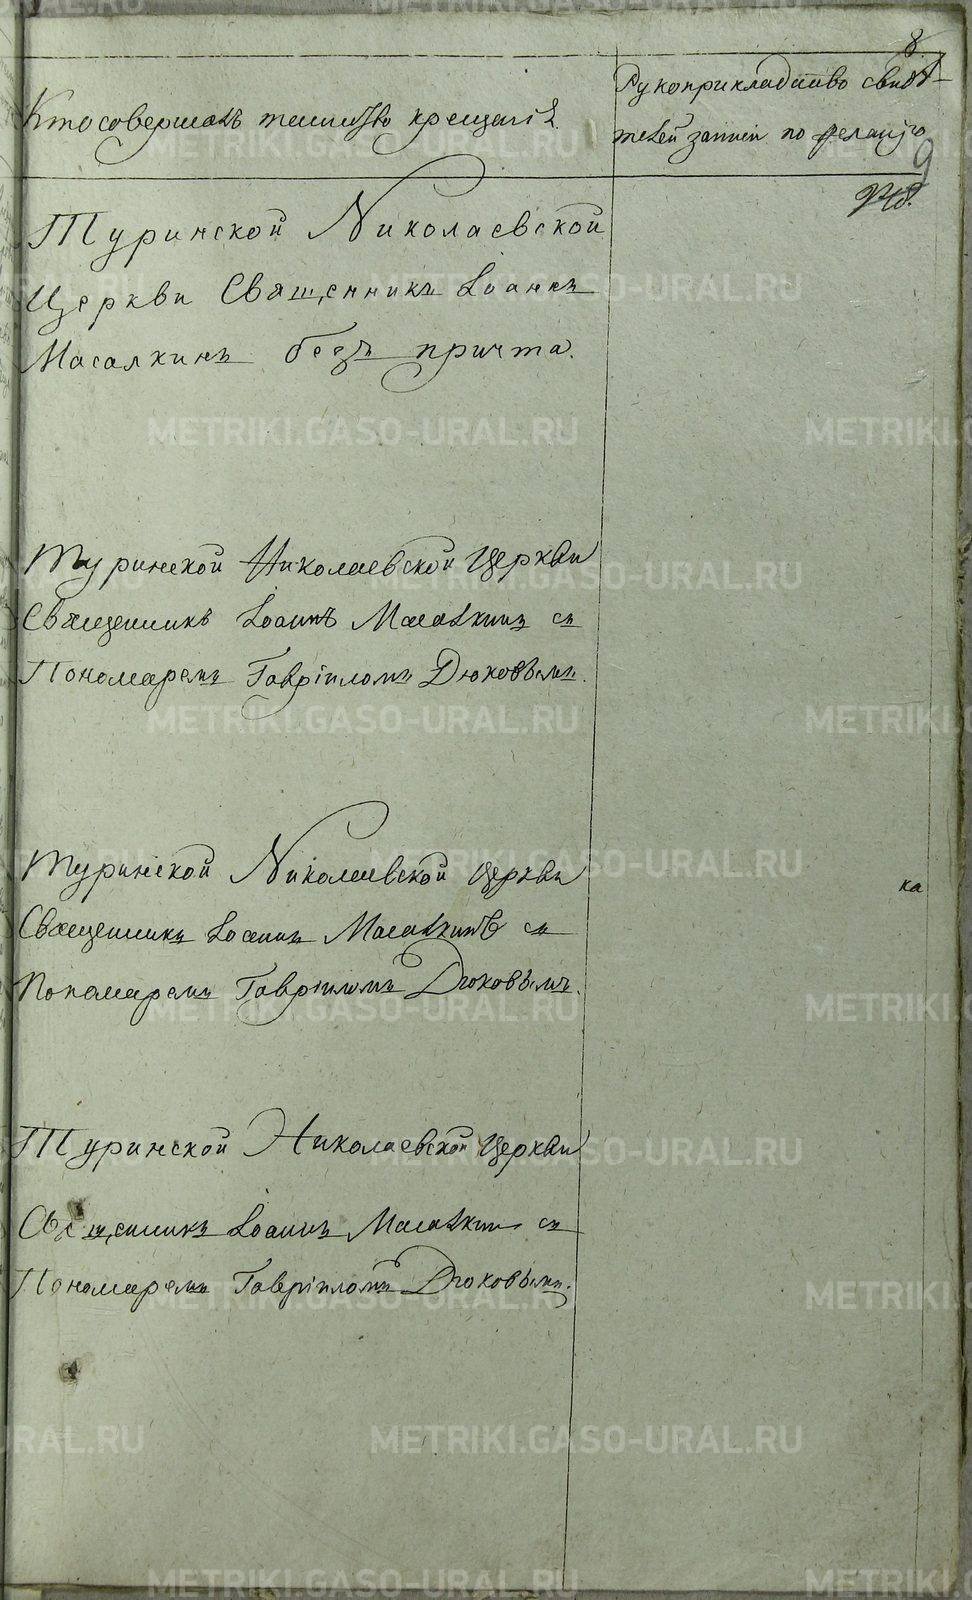 8
Кто совершалъ таинство крещенія.
Рукоприкладство свидѣ-
телей записи по желанію
9
Туринской Николаевской
Церкви Священникъ Іоаннъ
Масалкинъ безъ причта.
Туринской Николаевской Церкви
Священникъ Іоаннъ Масалкинъ съ
Пономаремъ Гавріиломъ Дюковымъ.
Туринской Николаевской Церкви
Священникъ Іоаннъ Масалкинъ съ
Пономаремъ Гавріиломъ Дюковымъ.
ка
Туринской Николаевской Церкви
Священникъ Іоаннъ Масалкинъ съ
Пономаремъ Гавріиломъ Дюковымъ.
METRIKI.GASO-URAL.RU